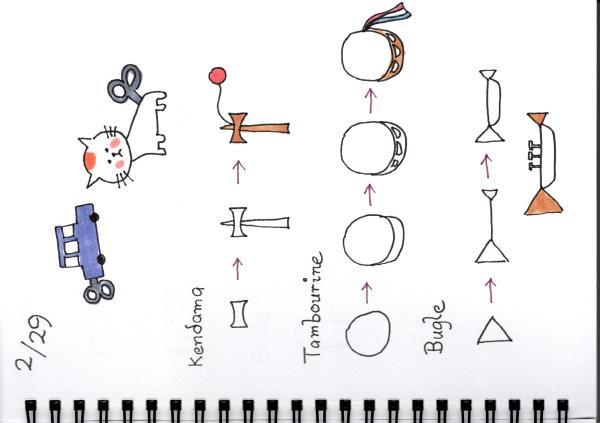 2/29
Kendama
Tambourine
Bugle